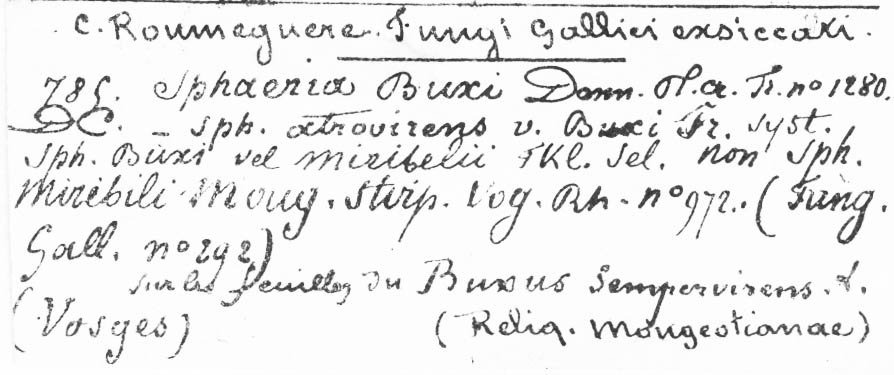 C. Roumeguere. Fungi Gallici exsiccati.
785. Sphaeria Buxi Dam. Pl. a. Fr. no 1280.
DC. _ sph. atrovirens v. Buxi Fr. syst.
sph. Buxi vel miribelii Fkl. Sel. non sph.
miribili Moug. stirp. Vog. Rh. no 972. (Fung.
Gall. no 292)
sur les feuilles du Buxus Sempervirens. L.
(Vosges) (Reliq. Mougeotianae)